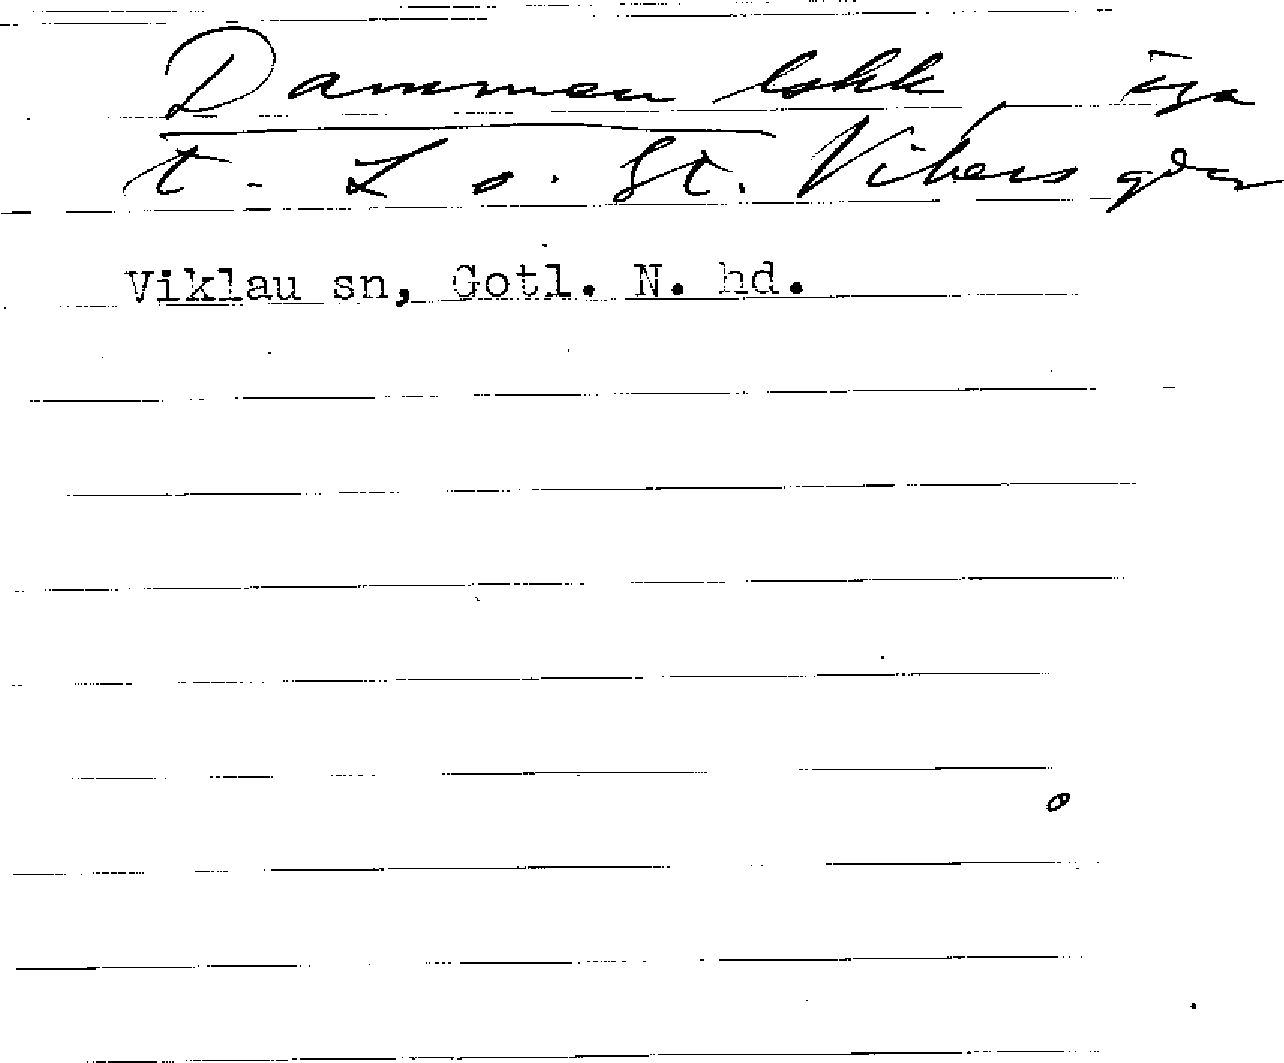 Dammen lokk, äga
t. L o. St. Vikers gdar
Viklau sn, Gotl. N. hd.